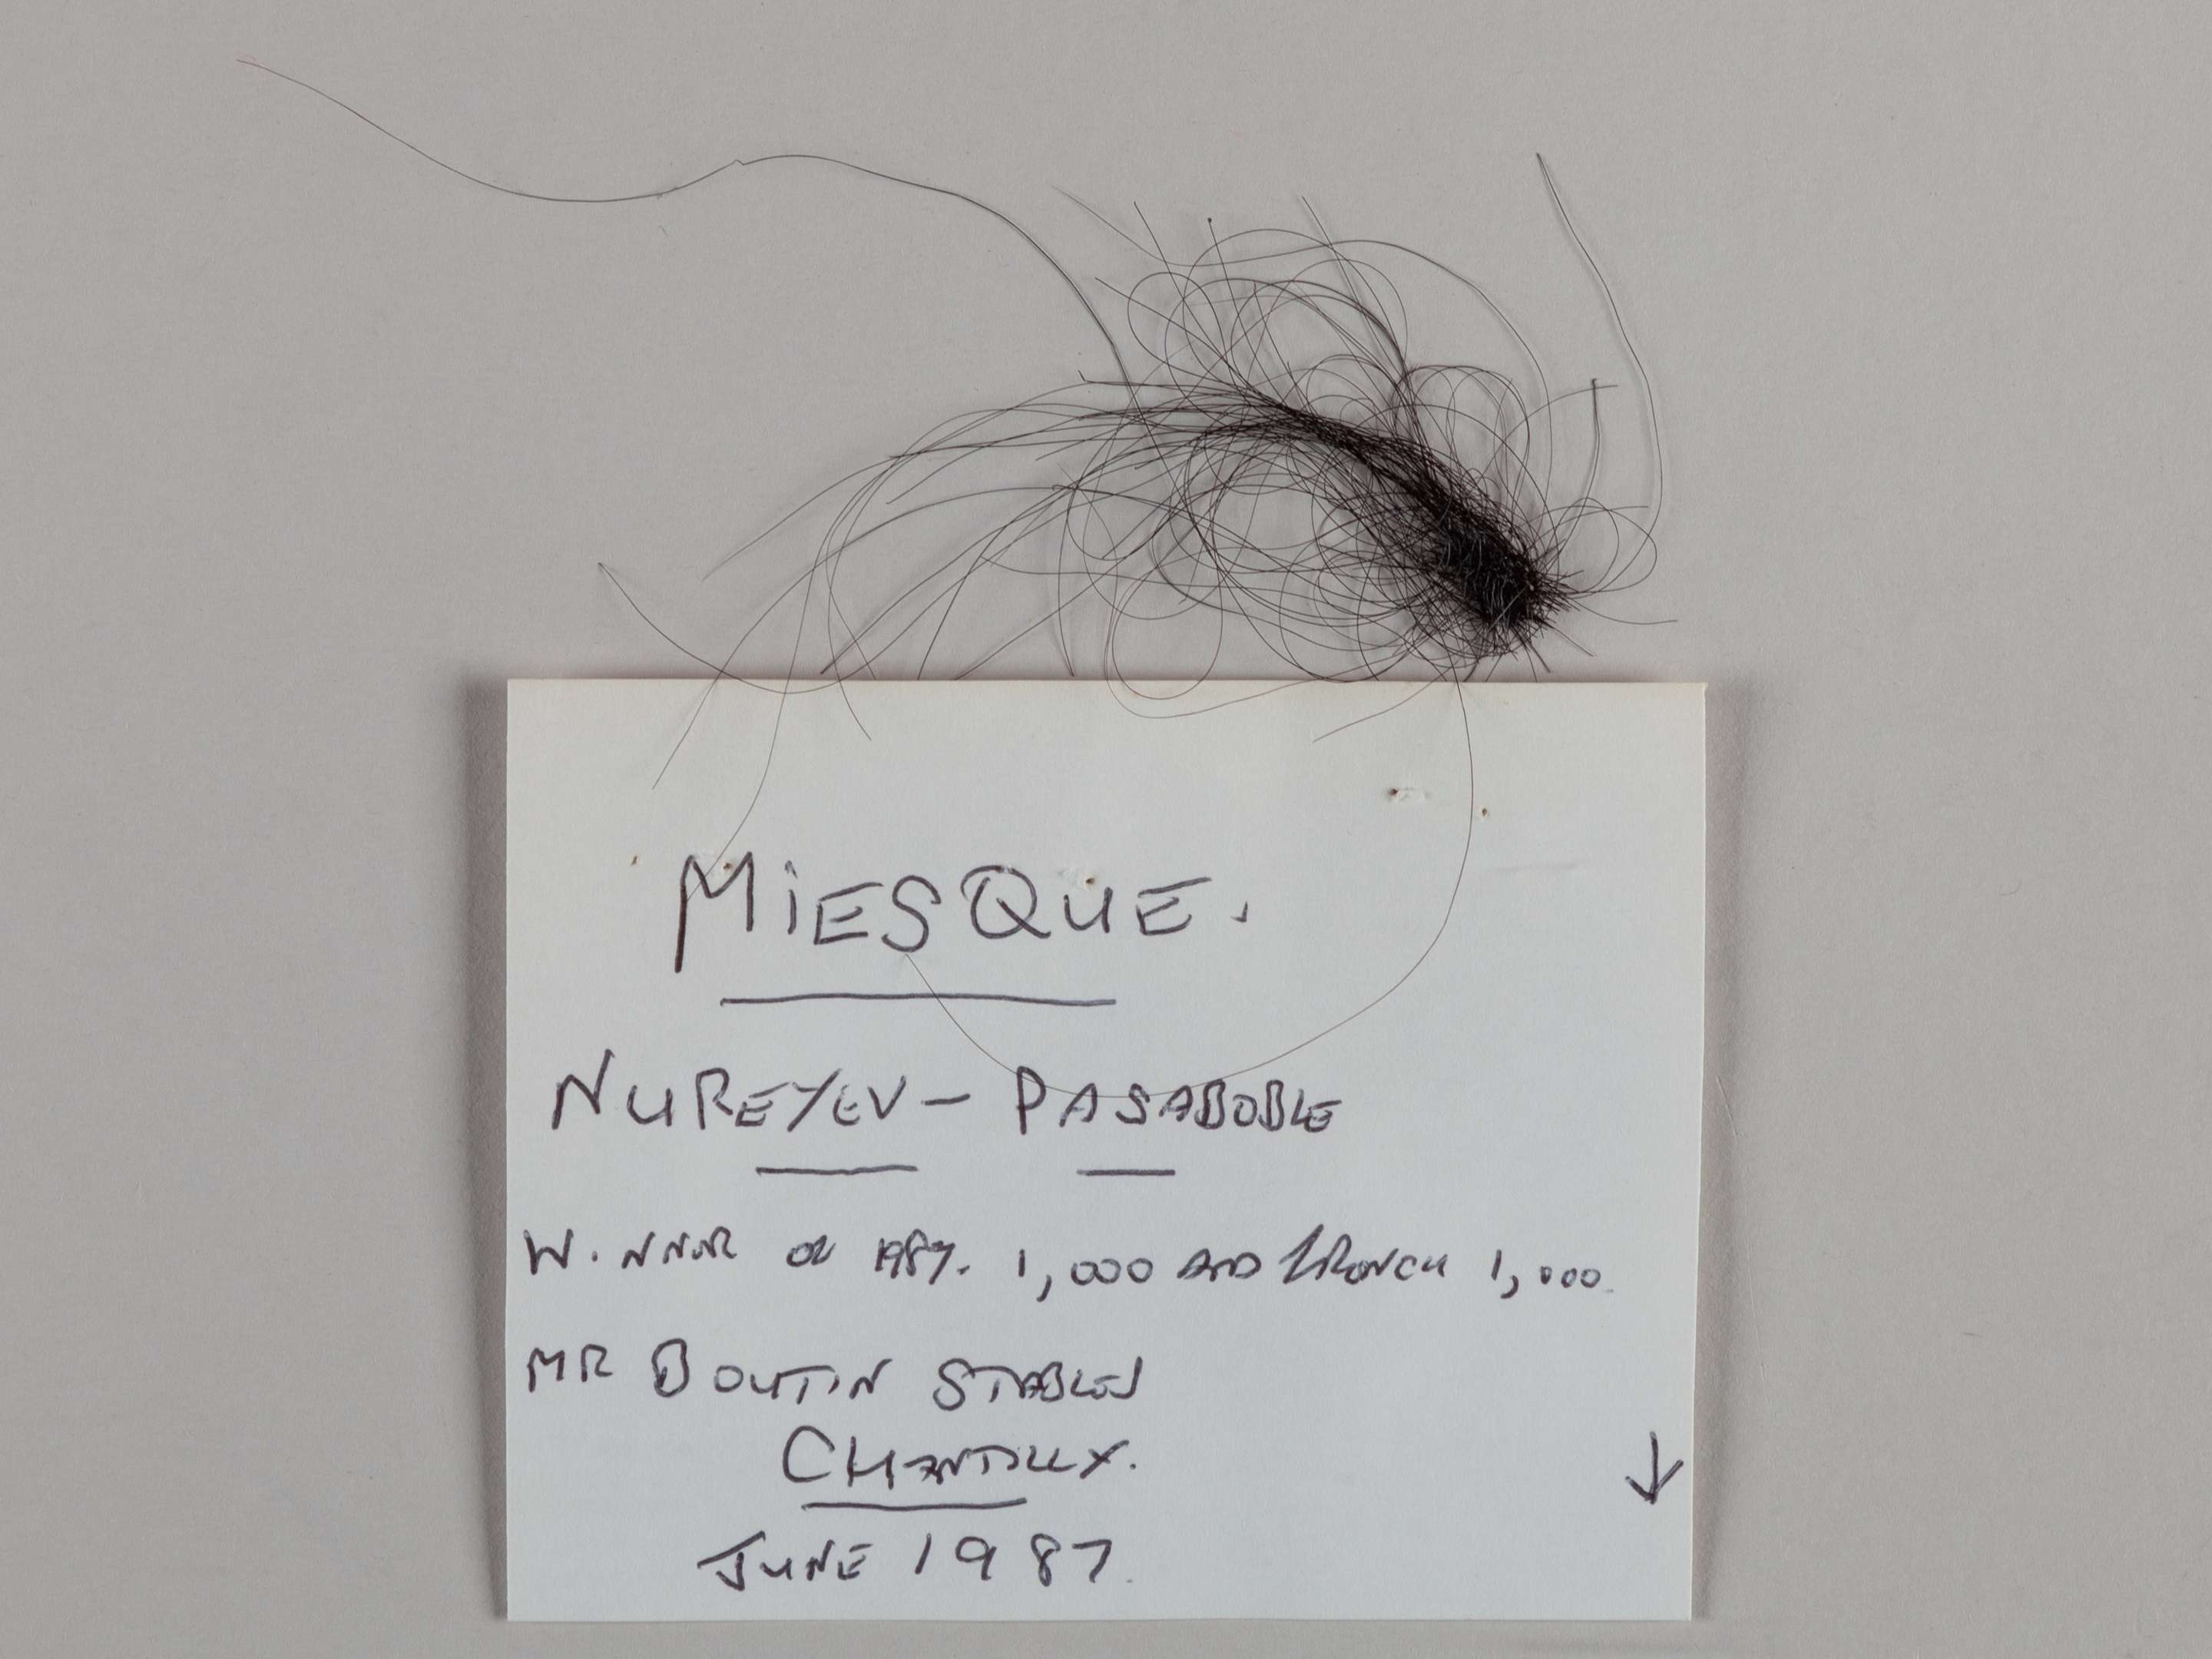 MiESQUE.
NUREYEV - PASABOBLE
W.NNER OF 1987. 1,000 AND FRENCH 1,000.
MR BOUTIN STABLES
CHANTILLY.
JUNE 1987.